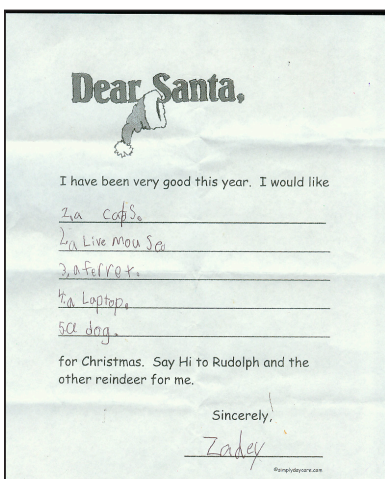 Dear Santa,
I have been very good this year. I would like
2,a cats.
2,a Live mouse.
3,a ferret.
4.a Laptop.
5a dog.
for Christmas. Say Hi to Rudolph and the
other reindeer for me.
Sincerely,
Zadey
©simplydaycare.com